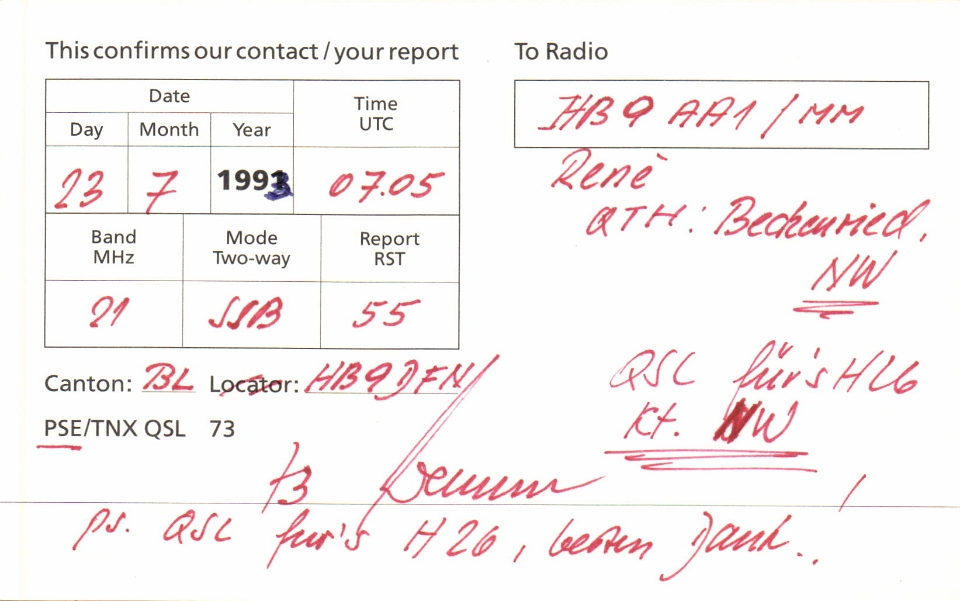 This confirms our contact / your report
To Radio
Date
Time
UTC
Day Month Year
23 7 1993 07.05
Band
MHz
Mode
Two-way
Report
RST
21 SSB 55
HB9AA1/MM
René
QTH: Beckenried,
NW
QSL für's H26
Kt. NW
Canton: BL Locator: HB9DFN/
PSE/TNX QSL 73
73
ps. QSL für's H26, besten Dank.!